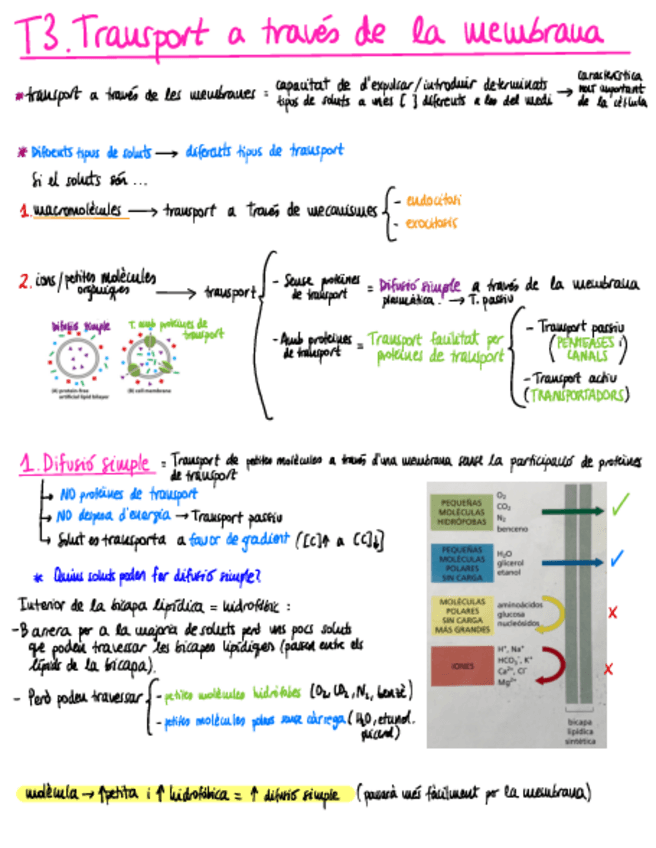 T3. Transport a través de la membrana
* transport a través de les membranes = capacitat de d'expulsar/introduir determinats
tipus de soluts a unes [ ] diferents a les del medi → característica
molt important
de la cèl·lula
* Diferents tipus de soluts → diferents tipus de transport
Si el soluts són ...
1. macromolècules → transport a través de mecanismes
- endocitosi
- exocitosis
2. ions/petites molècules
orgàniques → transport
- Sense proteïnes
de transport = Difusió simple a través de la membrana
plasmàtica. → T. passiu
- Amb proteïnes
de transport = Transport facilitat per
proteïnes de transport
- Transport passiu
(PERMEASES i
CANALS)
- Transport actiu
(TRANSPORTADORS)
Difusió simple
T. amb proteïnes de
transport
(A) protein-free
artificial lipid bilayer
(B) cell membrane
1. Difusió simple = Transport de petites molècules a través d'una membrana sense la participació de proteïnes
de transport
↳ NO proteïnes de transport
↳ NO despesa d'energia → Transport passiu
↳ Solut es transporta a favor de gradient ([C]↑ a [C]↓)
* Quins soluts poden fer difusió simple?
Interior de la bicapa lipídica = hidrofòbic :
- Barrera per a la majoria de soluts però uns pocs soluts
que poden travessar les bicapes lipídiques (passen entre els
lípids de la bicapa).
- Però poden travessar
- petites molècules hidròfobes (O₂, CO₂, N₂, benzè)
- petites molècules polars sense càrrega (H₂O, etanol,
glicerol)
PEQUEÑAS
MOLÉCULAS
HIDRÓFOBAS
O₂
CO₂
N₂
benceno
PEQUEÑAS
MOLÉCULAS
POLARES
SIN CARGA
H₂O
glicerol
etanol
MOLÉCULAS
POLARES
SIN CARGA
MÁS GRANDES
aminoácidos
glucosa
nucleósidos
IONES
H⁺, Na⁺
HCO₃⁻, K⁺
Ca²⁺, Cl⁻
Mg²⁺
bicapa
lipídica
sintética
molècula → ↑petita i ↑ hidrofòbica = ↑ difusió simple (passarà més fàcilment per la membrana)